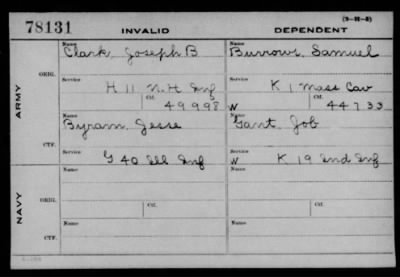 78131 INVALID DEPENDENT (3-21-2)
Name Clark, Joseph B Name Burrows, Samuel
ARMY ORIG. Service H 11 N.H. Inf Service K 1 Mass Cav
Ctf. 49998 W Ctf. 44733
CTF. Name Byram, Jesse Name Gant, Job
Service G 40 Ill Inf W Service K 19 Ind Inf
NAVY ORIG. Name Name
Ctf. Ctf.
CTF. Name Name